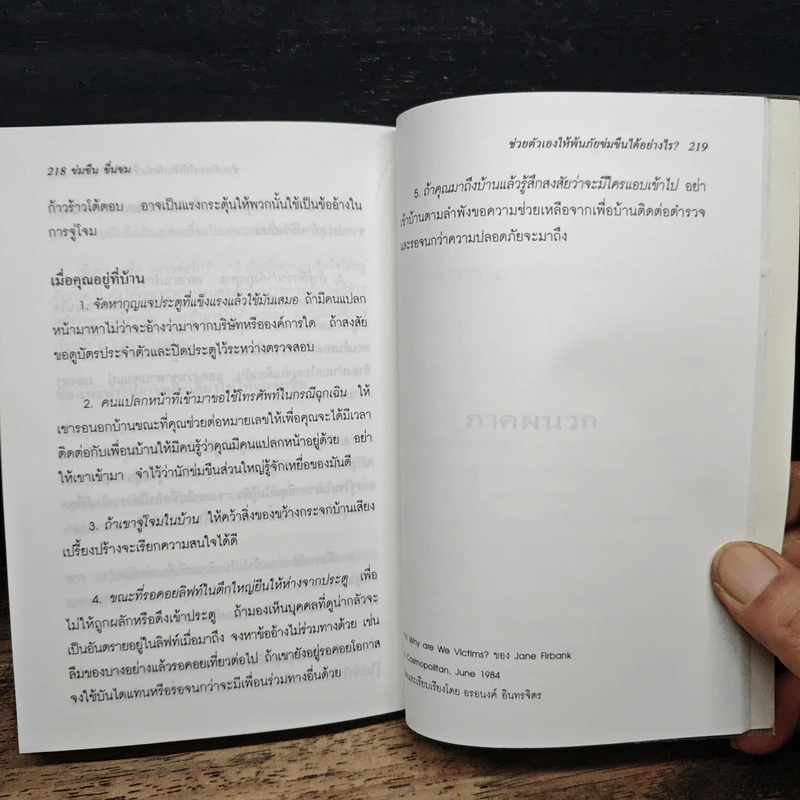 218 ข่มขืน ขื่นขม
ก้าวร้าวโต้ตอบ อาจเป็นแรงกระตุ้นให้พวกนั้นใช้เป็นข้ออ้างใน
การจู่โจม
เมื่อคุณอยู่ที่บ้าน
1. จัดหากุญแจประตูที่แข็งแรงแล้วใช้มันเสมอ ถ้ามีคนแปลก
หน้ามาหาไม่ว่าจะอ้างว่ามาจากบริษัทหรือองค์การใด ถ้าสงสัย
ขอดูบัตรประจำตัวและปิดประตูไว้ระหว่างตรวจสอบ
2. คนแปลกหน้าที่เข้ามาขอใช้โทรศัพท์ในกรณีฉุกเฉิน ให้
เขารอนอกบ้านขณะที่คุณช่วยต่อหมายเลขให้เพื่อคุณจะได้มีเวลา
ติดต่อกับเพื่อนบ้านให้มีคนรู้ว่าคุณมีคนแปลกหน้าอยู่ด้วย อย่า
ให้เขาเข้ามา จำไว้ว่านักข่มขืนส่วนใหญ่รู้จักเหยื่อของมันดี
3. ถ้าเขาจู่โจมในบ้าน ให้คว้าสิ่งของขว้างกระจกบ้านเสียง
เปรี้ยงปร้างจะเรียกความสนใจได้ดี
4. ขณะที่รอคอยลิฟท์ในตึกใหญ่ยืนให้ห่างจากประตู เพื่อ
ไม่ให้ถูกผลักหรือดึงเข้าประตู ถ้ามองเห็นบุคคลที่ดูน่ากลัวจะ
เป็นอันตรายอยู่ในลิฟท์เมื่อมาถึง จงหาข้ออ้างไม่ร่วมทางด้วย เช่น
ลืมของบางอย่างแล้วรอคอยเที่ยวต่อไป ถ้าเขายังอยู่รอคอยโอกาส
จงใช้บันไดแทนหรือรอจนกว่าจะมีเพื่อนร่วมทางอื่นด้วย
ช่วยตัวเองให้พ้นภัยข่มขืนได้อย่างไร? 219
5. ถ้าคุณมาถึงบ้านแล้วรู้สึกสงสัยว่าจะมีใครแอบเข้าไป อย่า
เข้าบ้านตามลำพังขอความช่วยเหลือจากเพื่อบ้านติดต่อตำรวจ
และรอจนกว่าความปลอดภัยจะมาถึง
ภาคผนวก
Why are We Victims? ของ Jane Firbank
Cosmopolitan, June 1984
และเรียบเรียงโดย อรอนงค์ อินทรจิตร